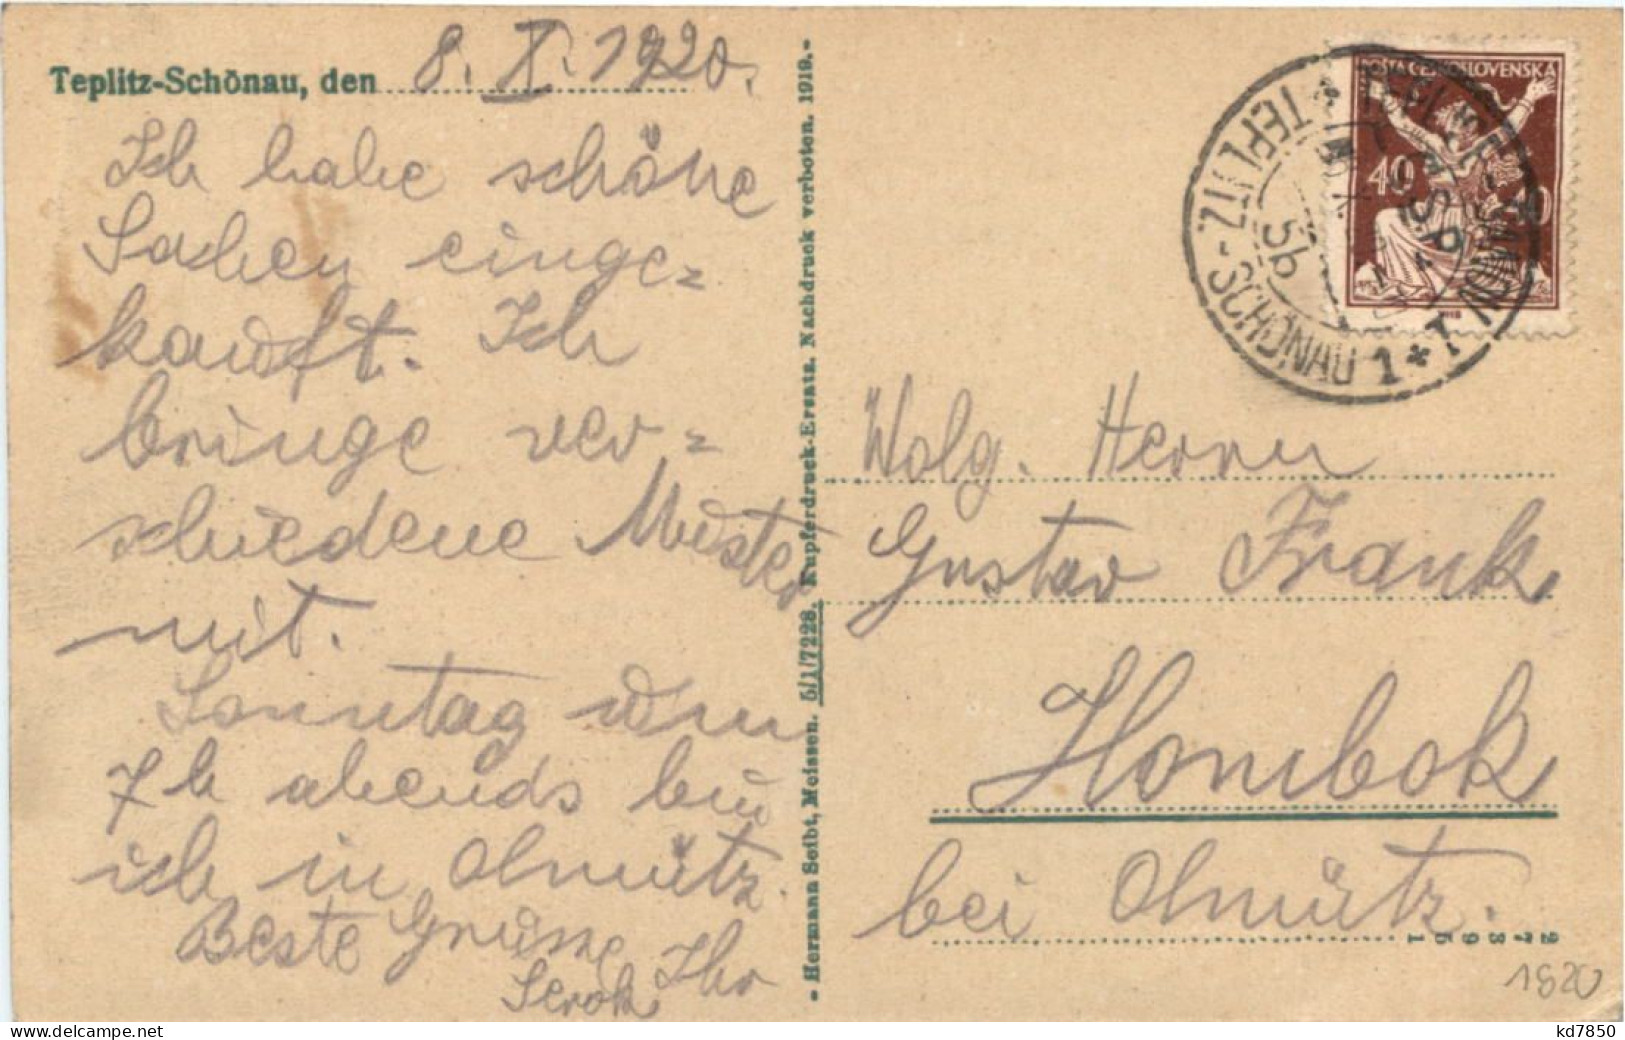 Teplitz-Schönau, den 8. X. 1920.
Ich habe schöne
Sachen einge=
kauft. Ich
bringe ver=
schiedene Muster
mit.
Sonntag um
7 h abends bin
ich in Olmütz.
Beste Grüsse Ihr
- Hermann Seibt, Meissen. 5/1/7228. Kupferdruck-Ersatz. Nachdruck verboten. 1919. -
POŠTA ČESKOSLOVENSKÁ
40
TEPLITZ-SCHÖNAU 1
5b
Wolg. Herrn
Gustav Frank
Hombok
bei Olmütz.
1820
www.delcampe.net
kd7850